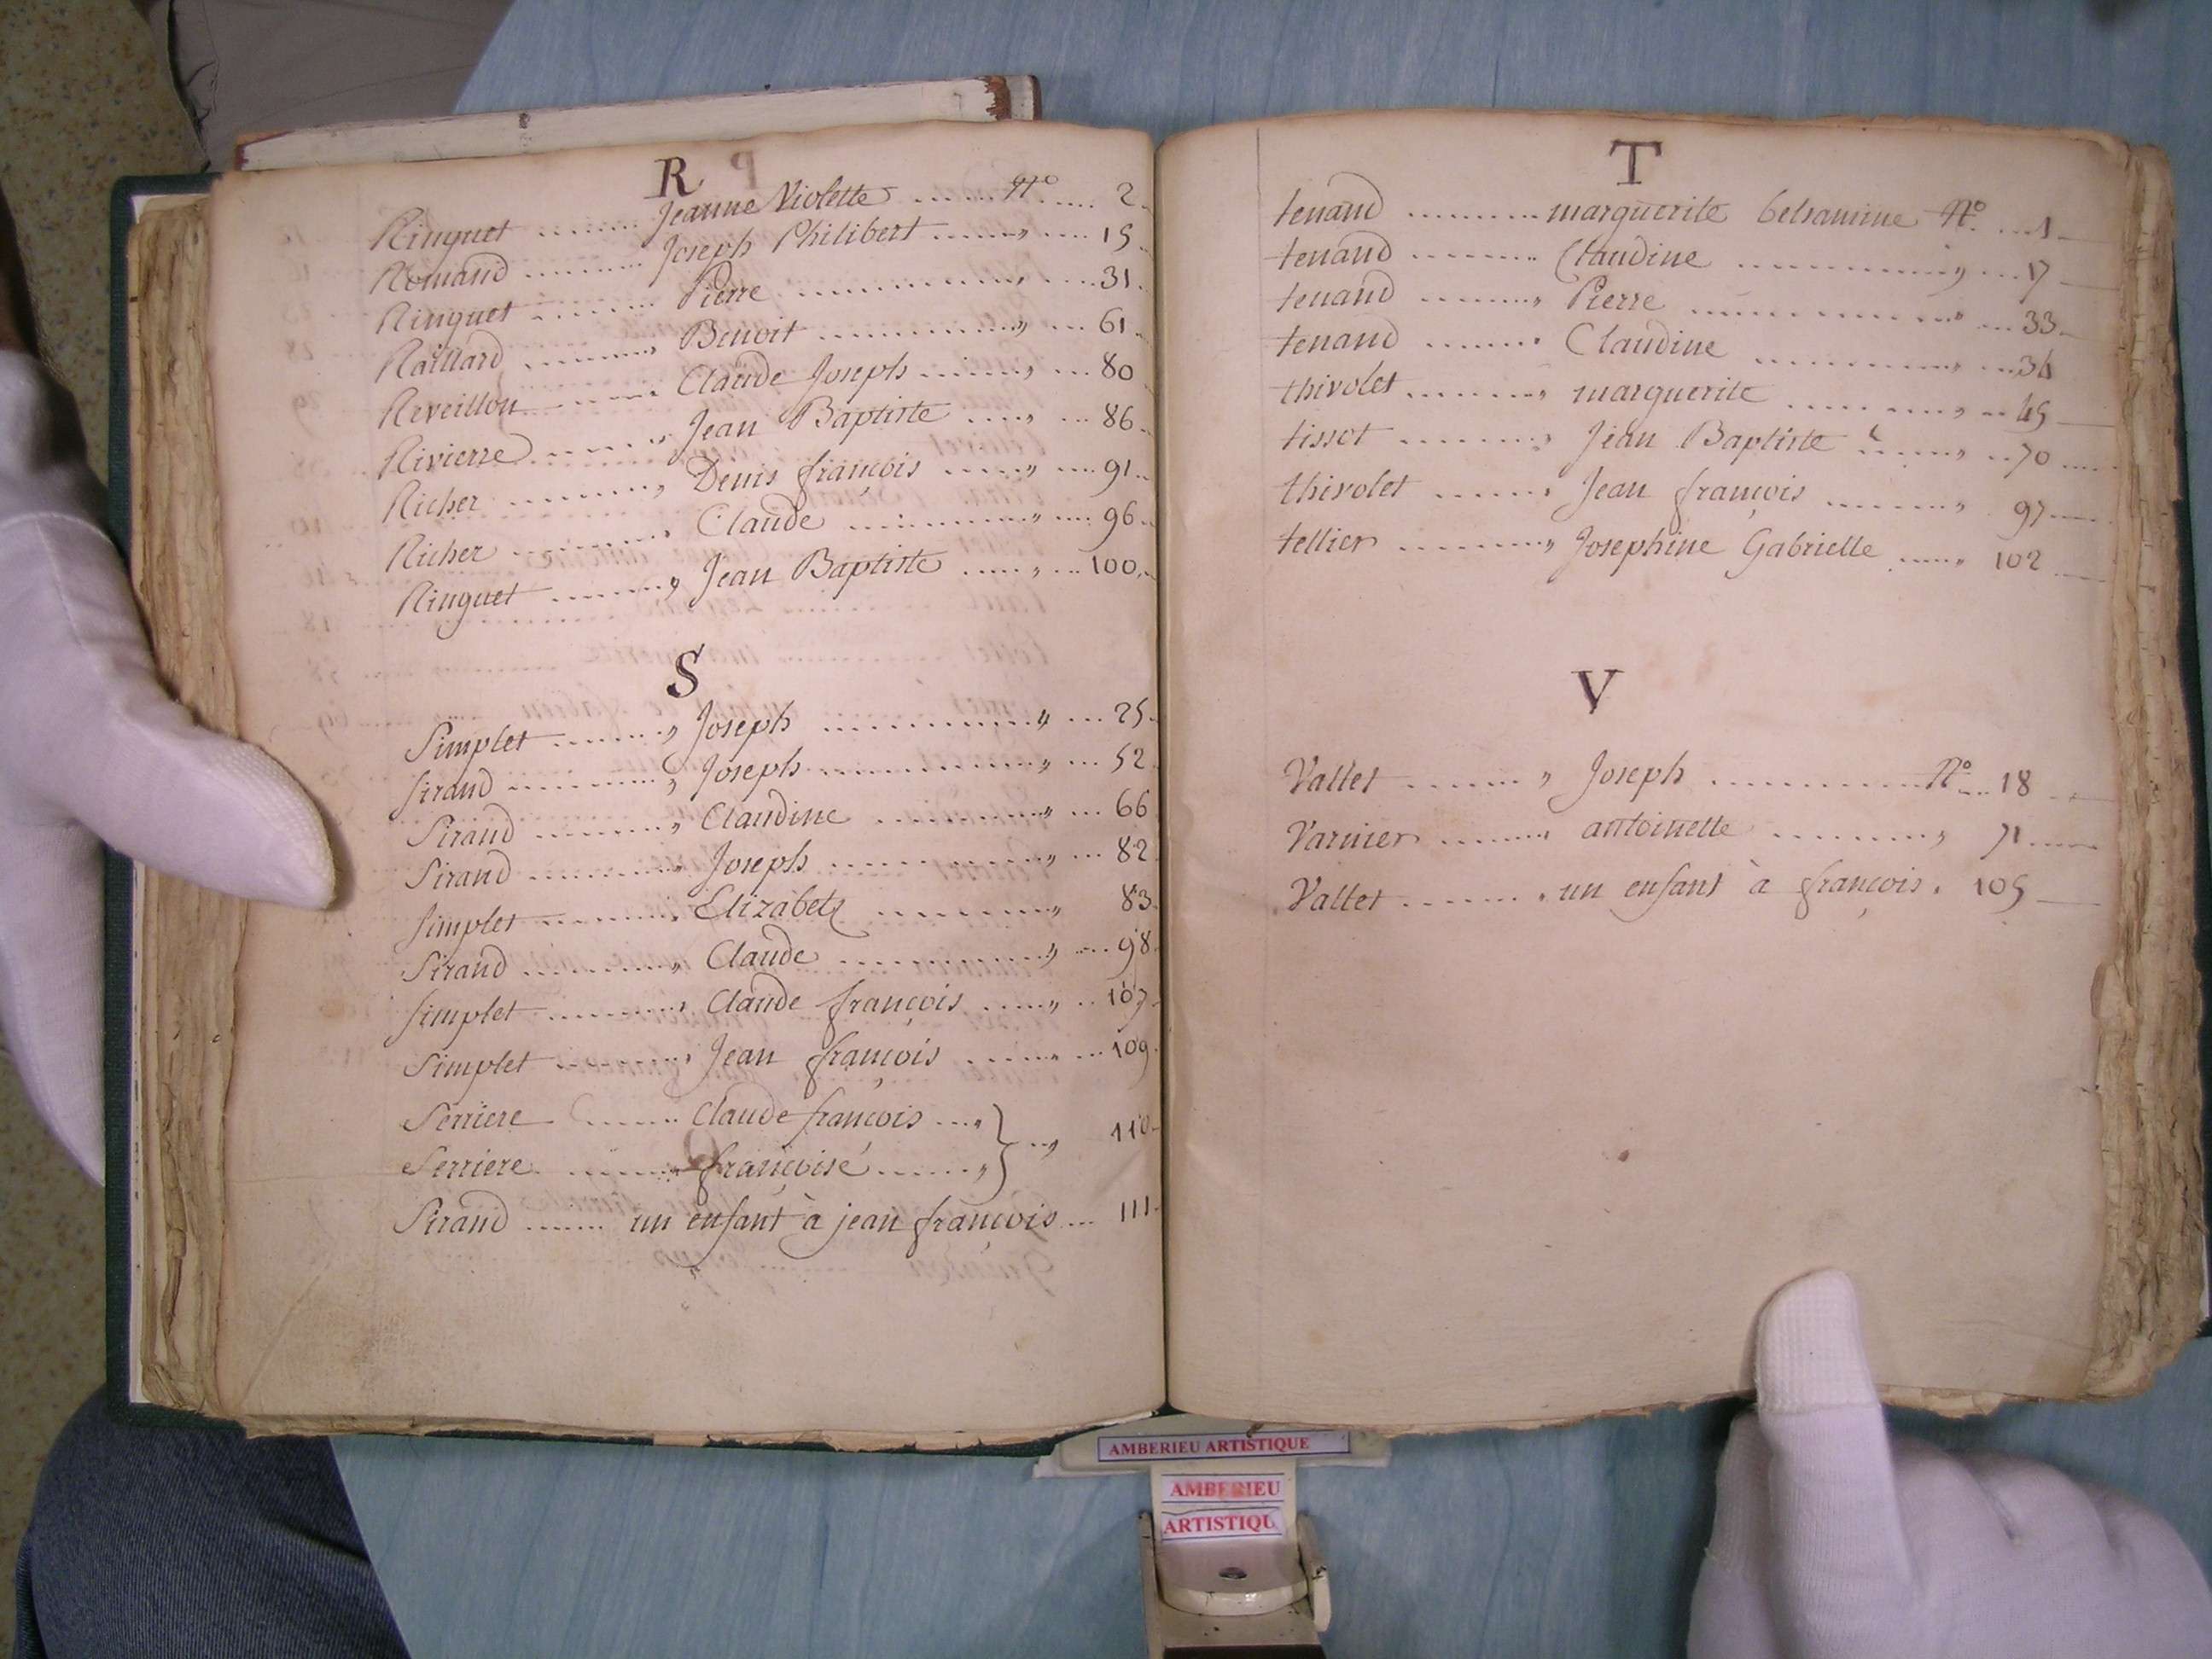 R
Ringuet ........ Jeanne Violette ...... N° .... 2
Romand ......... Joseph Philibert ...... " .... 15
Ringuet ........ Pierre ............ " .... 31
Raillard ........ Benoit ............ " ... 61
Reveillon ........ Claude Joseph ...... " ... 80
Rivierre ........ Jean Baptiste ..... " ... 86
Richer ......... " Denis françois ..... " .... 91
Richer ......... " Claude ............ " .... 96
Ringuet ........ " Jean Baptiste ..... " ... 100
S
Simplet ....... " Joseph ............ " ... 25
Sirand ......... " Joseph ............ " ... 52
Sirand ......... " Claudine ......... " ... 66
Sirand ......... " Joseph ............ " ... 82
Simplet ........ " Elizabeth ......... " 83
Sirand ......... " Claude ............ " .... 98
Simplet ........ " Claude françois ..... " .. 107
Simplet ........ " Jean françois ...... " ... 109
Serriere ...... Claude françois ... " } .. " 110
Serriere ...... " françoise ...... " }
Sirand ....... un enfant à jean françois ... 111
T
tenand ......... marguerite belsamine N° ... 1
tenand ........ Claudine ............ " ... 17
tenand ........ " Pierre ............ " ... 33
tenand ........ Claudine ............ " ... 34
thivolet ........ " marguerite ......... " .. 45
tissot ........ " Jean Baptiste ...... " .. 70
thivolet ...... " Jean françois ....... " 97
tellier ......... " Josephine Gabrielle ..... " 102
V
Vallet ....... " Joseph ............ N° ... 18
Varnier ....... " antoinette ......... " 71
Vallet ....... " un enfant à françois . 105
AMBERIEU ARTISTIQUE
AMBERIEU
ARTISTIQU